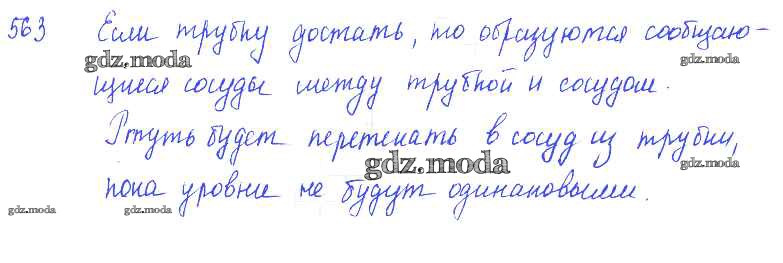 563 Если трубку достать, то образуются сообщаю-
gdz.moda gdz.moda
щиеся сосуды между трубкой и сосудом.
Ртуть будет перетекать в сосуд из трубки,
gdz.moda gdz.moda
пока уровни не будут одинаковыми.
gdz.moda gdz.moda
gdz.moda gdz.moda